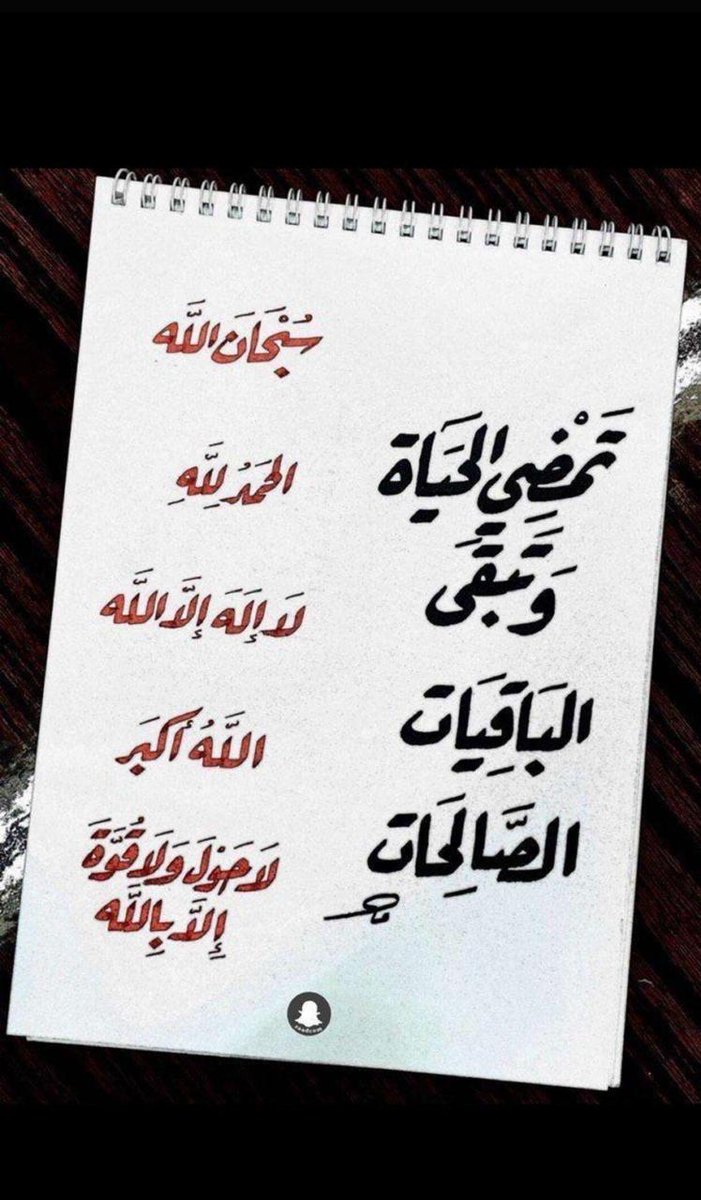 تَمْضِي الحَيَاة
وَتَبْقَى
البَاقِيَات
الصَّالِحَات
سُبْحَانَ اللَّه
الحَمَدُ لِلَّهِ
لَا إِلَهَ إِلَّا اللَّه
اللَّهُ أَكبَر
لَا حَوْلَ وَلَا قُوَّةَ
إِلَّا بِاللَّه